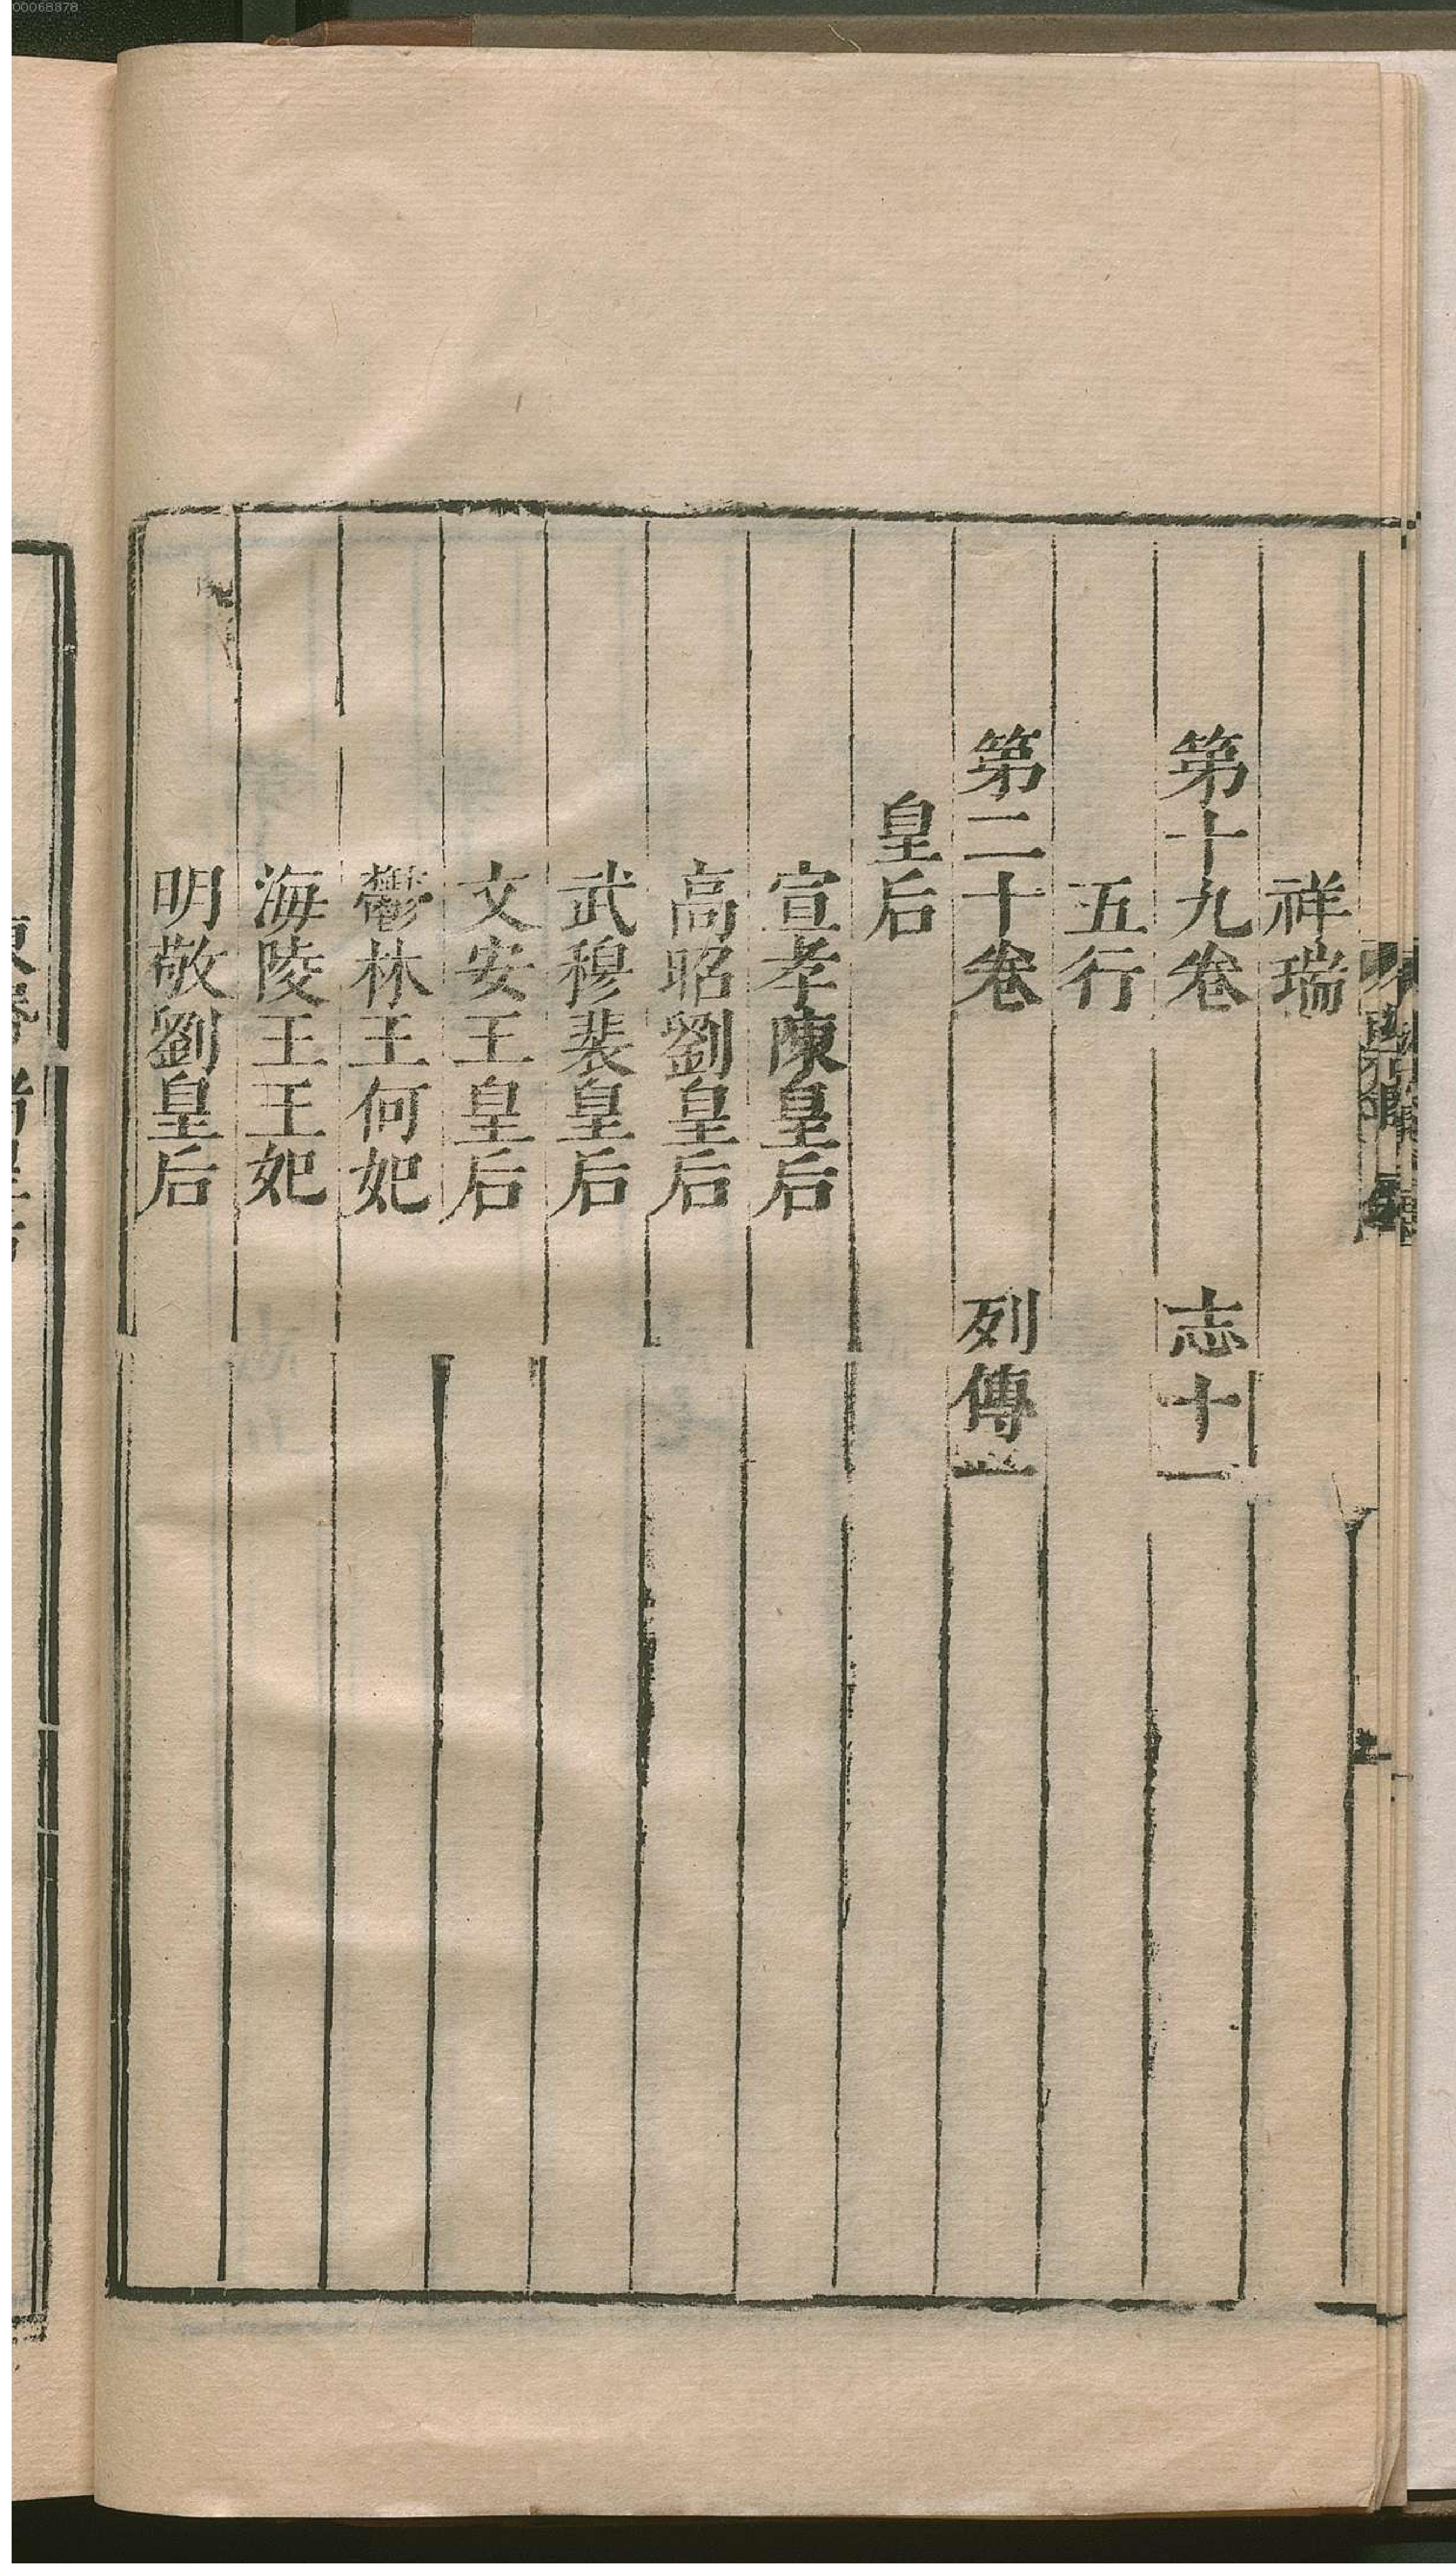 00068878
祥瑞
第十九卷 志十一
五行
第二十卷 列傳一
皇后
宣孝陳皇后
高昭劉皇后
武穆裴皇后
文安王皇后
鬱林王何妃
海陵王王妃
明敬劉皇后